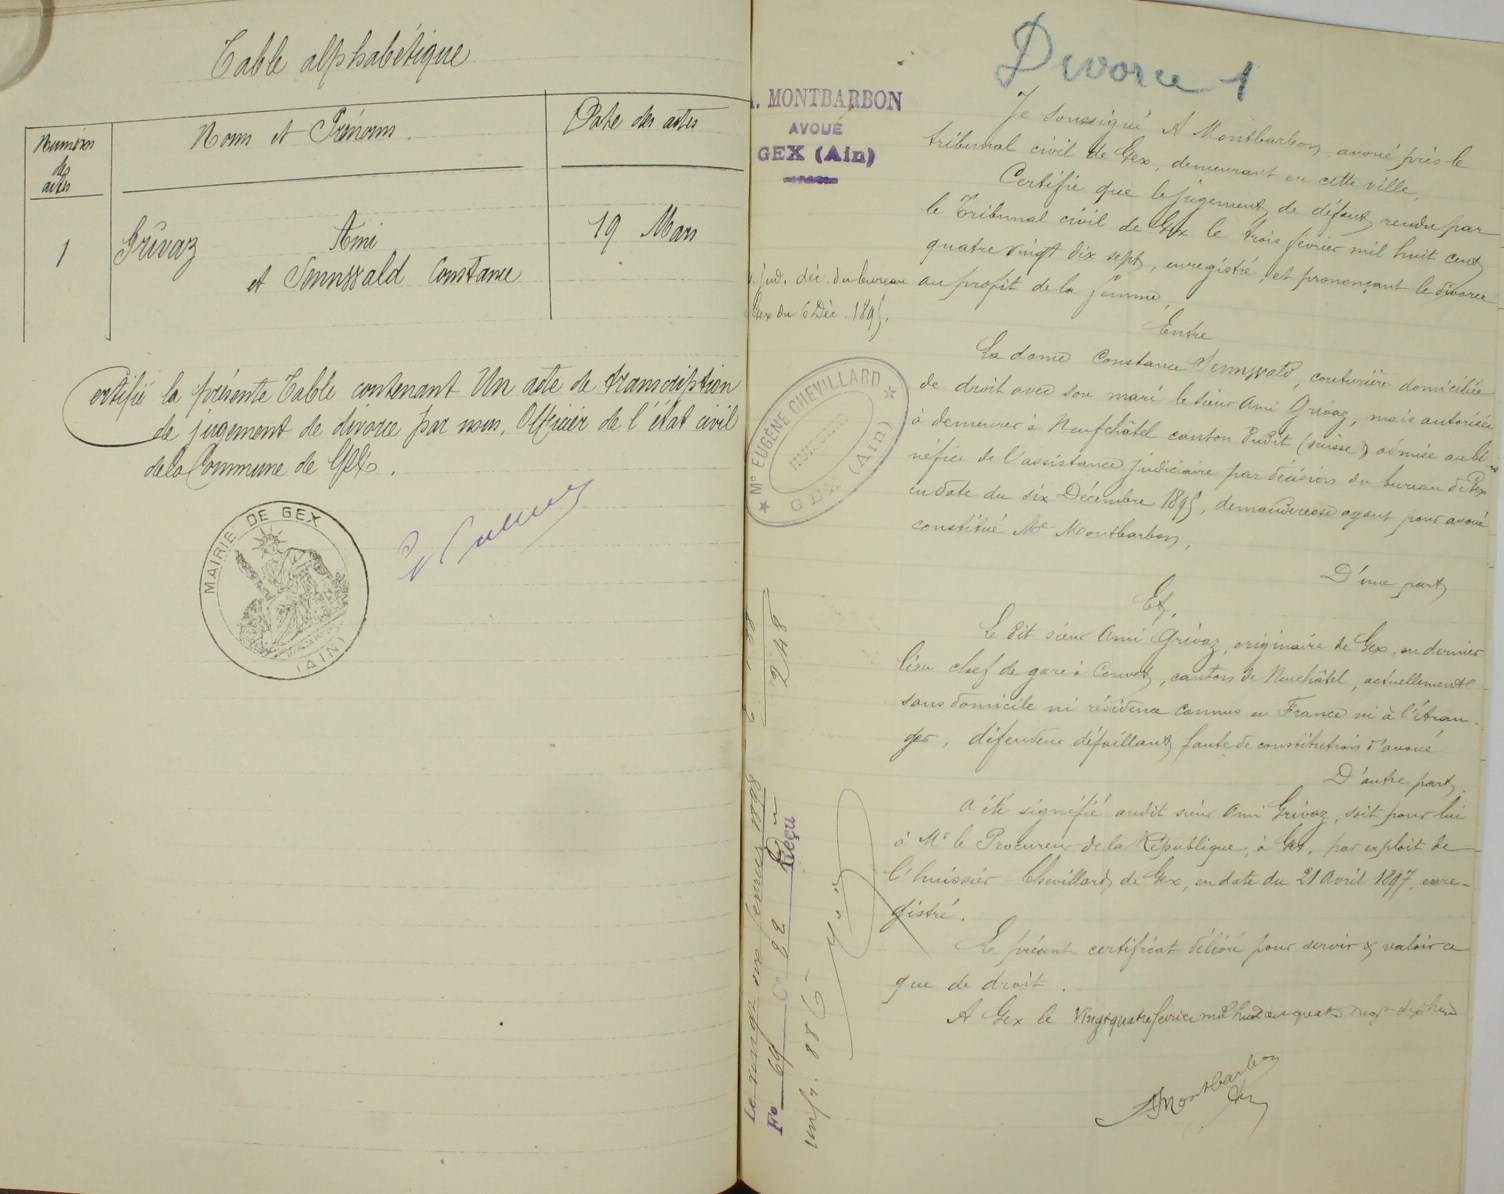 Table alphabétique
Numéros
des
actes
Noms et Prénoms
Date des actes
1
Grivaz Ami
et Sennwald Constance
19 Mars
Certifié la présente Table contenant Un acte de transcription
de jugement de divorce par nous, Officier de l'état civil
de la Commune de Gex.
MAIRIE DE GEX
(AIN)
Divorce 1
A. MONTBARBON
AVOUÉ
GEX (Ain)
Je soussigné A Montbarbon, avoué près le
tribunal civil de Gex, demeurant en cette ville,
Certifie que le jugement de défaut, rendu par
le Tribunal civil de Gex le trois février mil huit cent
quatre vingt dix sept, enregistré, et prononçant le divorce
au profit de la femme,
jud. déc. du bureau
Gex du 6 Déc. 1895.
Entre
La dame Constance Sennwald, couturière domiciliée
de droit avec son mari le sieur Ami Grivaz, mais autorisée
à demeurer à Neufchâtel canton dudit (Suisse) admise au bé
néfice de l'assistance judiciaire par décision du bureau de Gex
en date du six Décembre 1895, demanderesse ayant pour avoué
constitué Me Montbarbon,
Me EUGÈNE CHEVILLARD
HUISSIER
GEX (Ain)
D'une part,
Et,
Le dit sieur Ami Grivaz, originaire de Gex, en dernier
lieu chef de gare à Couvet, canton de Neuchâtel, actuellement
sans domicile ni résidence connus en France ni à l'étran-
ger, défendeur défaillant, faute de constitution d'avoué
D'autre part,
A été signifié audit sieur Ami Grivaz, soit pour lui
à Mr le Procureur de la République, à Gex, par exploit de
l'huissier Chevillard, de Gex, en date du 21 Avril 1897, enre-
gistré.
Le présent certificat délivré pour servir & valoir ce
que de droit.
A Gex le vingt quatre février mil huit cent quatre vingt dix huit
AMontbarbon
248
Le vingt six février 1898
Fo 69 Co 22 Reçu